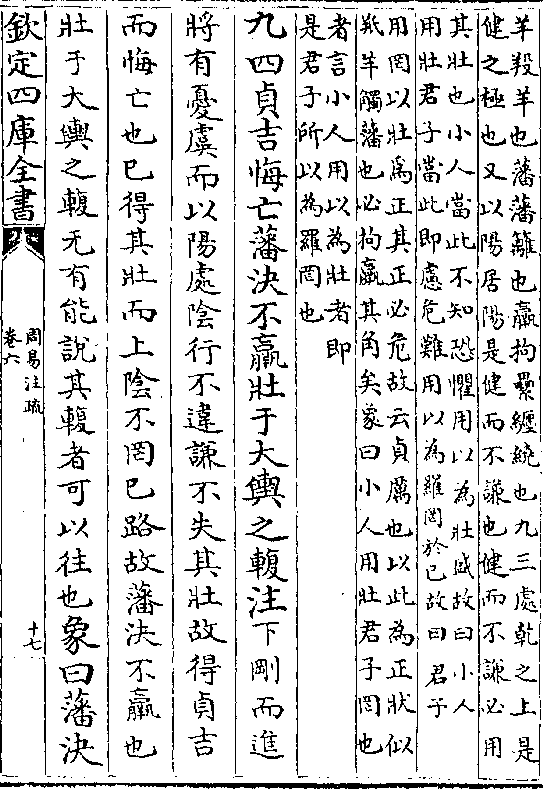 羊羖羊也藩藩籬也羸拘纍纏繞也九三處乾之上是
健之極也又以陽居陽是健而不謙也健而不謙必用
其壯也小人當此不知恐懼用以為壯盛故曰小人
用壯君子當此即慮危難用以為羅罔於已故曰君子
用罔以壯為正其正必危故云貞厲也以此為正狀似
羝羊觸藩也必拘羸其角矣象曰小人用壯君子罔也
者言小人用以為壯者即
是君子所以為羅罔也
九四貞吉悔亡藩決不羸壯于大輿之輹注下剛而進
將有憂虞而以陽處隂行不違謙不失其壯故得貞吉
而悔亡也已得其壯而上隂不罔已路故藩決不羸也
壯于大輿之輹无有能說其輹者可以往也象曰藩決
欽定四庫全書
周易注疏
卷六
十七